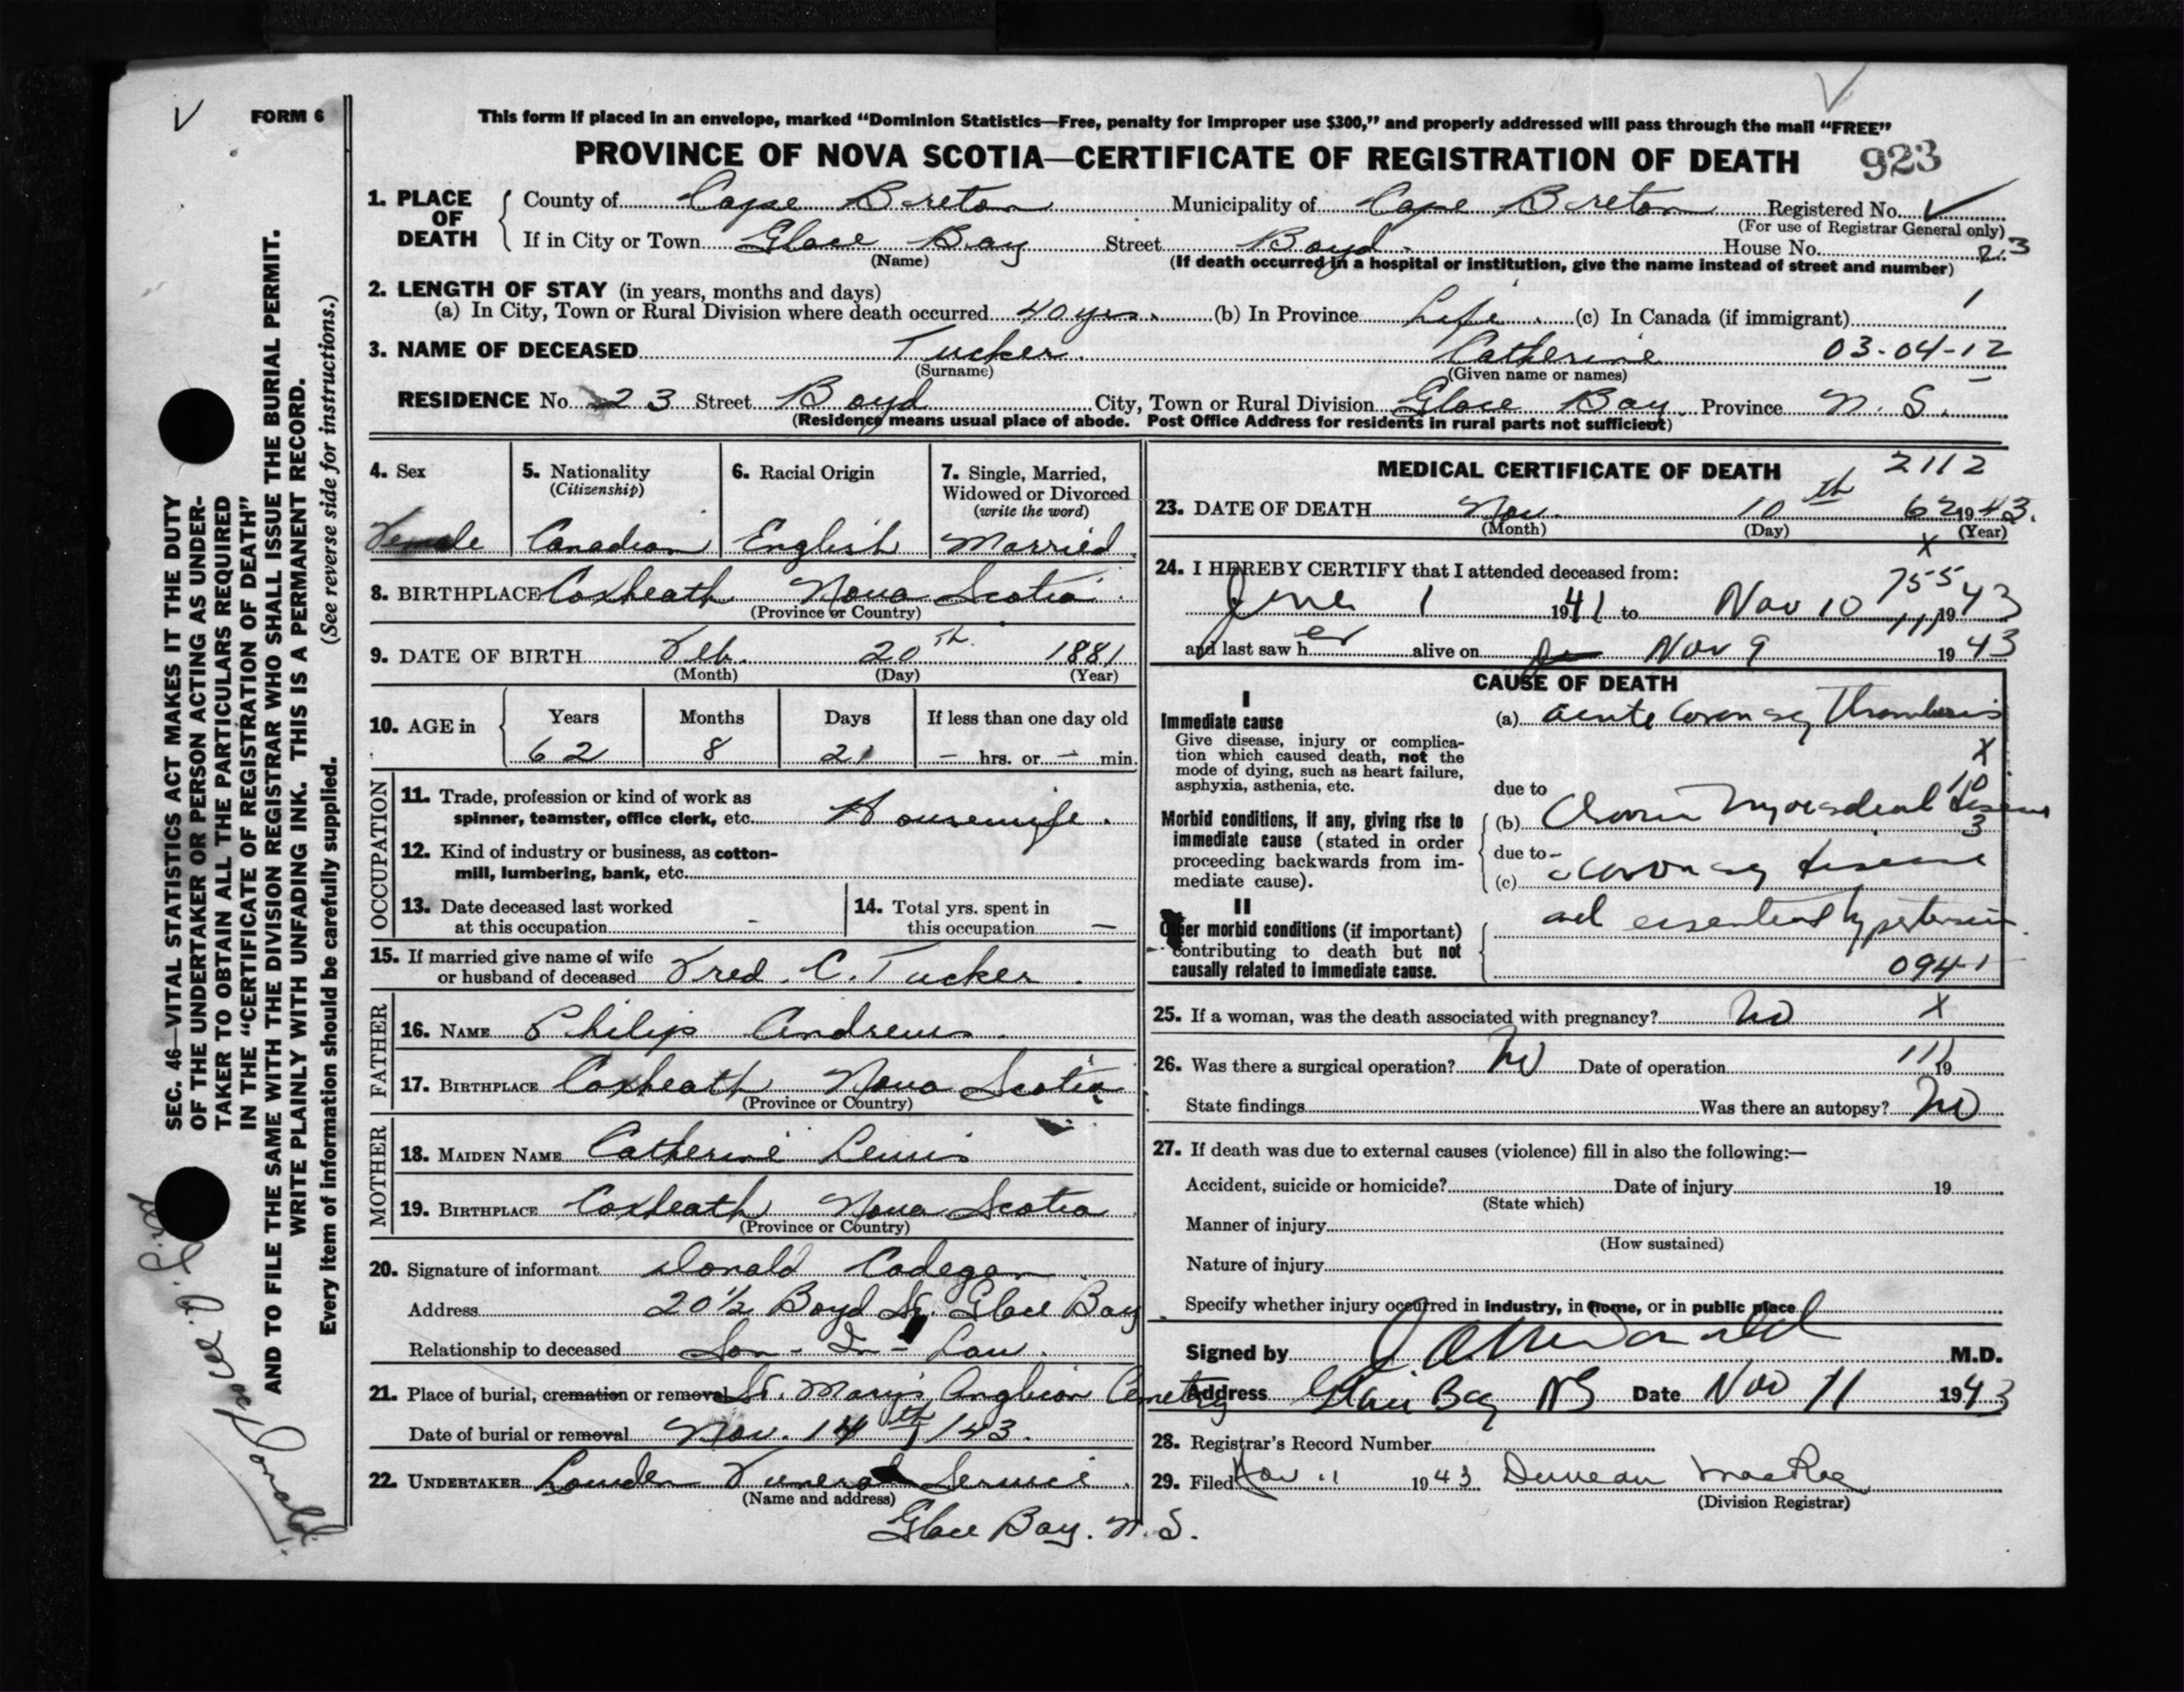 V
FORM 6
V
This form if placed in an envelope, marked “Dominion Statistics—Free, penalty for improper use $300,” and properly addressed will pass through the mail “FREE”
PROVINCE OF NOVA SCOTIA—CERTIFICATE OF REGISTRATION OF DEATH 923
1. PLACE OF DEATH County of Cape Breton Municipality of Cape Breton Registered No. V
(For use of Registrar General only)
If in City or Town Glace Bay Street Boyd. House No. 23
(Name) (If death occurred in a hospital or institution, give the name instead of street and number)
2. LENGTH OF STAY (in years, months and days) 1
(a) In City, Town or Rural Division where death occurred 40 yrs. (b) In Province Life. (c) In Canada (if immigrant)
3. NAME OF DECEASED Tucker. Catherine 03-04-12
(Surname) (Given name or names)
RESIDENCE No. 23 Street Boyd City, Town or Rural Division Glace Bay. Province N. S.
(Residence means usual place of abode. Post Office Address for residents in rural parts not sufficient)
4. Sex Female
5. Nationality (Citizenship) Canadian
6. Racial Origin English
7. Single, Married, Widowed or Divorced (write the word) Married.
8. BIRTHPLACE Coxheath Nova Scotia.
(Province or Country)
9. DATE OF BIRTH Feb. 20th. 1881
(Month) (Day) (Year)
10. AGE in Years Months Days If less than one day old
62 8 21 — hrs. or — min.
OCCUPATION
11. Trade, profession or kind of work as
spinner, teamster, office clerk, etc. Housewife.
12. Kind of industry or business, as cotton-
mill, lumbering, bank, etc.
13. Date deceased last worked
at this occupation -
14. Total yrs. spent in
this occupation —
15. If married give name of wife
or husband of deceased Fred. C. Tucker.
FATHER
16. NAME Philip Andrews.
17. BIRTHPLACE Coxheath Nova Scotia
(Province or Country)
MOTHER
18. MAIDEN NAME Catherine Lewis
19. BIRTHPLACE Coxheath Nova Scotia
(Province or Country)
20. Signature of informant Donald Cadegan
Address 20½ Boyd St. Glace Bay.
Relationship to deceased Son-In-Law.
21. Place of burial, cremation or removal St. Mary's Anglican Cemetry
Date of burial or removal Nov. 14th/43.
22. UNDERTAKER Louden Funeral Service.
(Name and address)
Glace Bay. N. S.
MEDICAL CERTIFICATE OF DEATH 2112
23. DATE OF DEATH Nov. 10th 62 1943.
(Month) (Day) (Year)
X
24. I HEREBY CERTIFY that I attended deceased from:
755
June 1 1941 to Nov 10 1943
111
and last saw her alive on Nov 9 1943
CAUSE OF DEATH
I
Immediate cause
Give disease, injury or complica-
tion which caused death, not the
mode of dying, such as heart failure,
asphyxia, asthenia, etc.
(a) acute coronary Thrombosis
X
10
due to
Morbid conditions, if any, giving rise to
immediate cause (stated in order
proceeding backwards from im-
mediate cause).
(b) Chronic Myocardial disease
3
due to
(c) coronary disease
II
Other morbid conditions (if important)
contributing to death but not
causally related to immediate cause.
and essential hypertension.
0941
25. If a woman, was the death associated with pregnancy? No X
26. Was there a surgical operation? No Date of operation 111 19
State findings Was there an autopsy? No
27. If death was due to external causes (violence) fill in also the following:—
Accident, suicide or homicide? Date of injury 19
(State which)
Manner of injury
(How sustained)
Nature of injury
Specify whether injury occurred in industry, in home, or in public place
Signed by M.D.
Address Glace Bay NS Date Nov 11 1943
28. Registrar's Record Number
29. Filed Nov 11 1943 Duncan MacRae
(Division Registrar)
SEC. 46—VITAL STATISTICS ACT MAKES IT THE DUTY
OF THE UNDERTAKER OR PERSON ACTING AS UNDER-
TAKER TO OBTAIN ALL THE PARTICULARS REQUIRED
IN THE “CERTIFICATE OF REGISTRATION OF DEATH”
AND TO FILE THE SAME WITH THE DIVISION REGISTRAR WHO SHALL ISSUE THE BURIAL PERMIT.
WRITE PLAINLY WITH UNFADING INK. THIS IS A PERMANENT RECORD.
Every item of information should be carefully supplied. (See reverse side for instructions.)